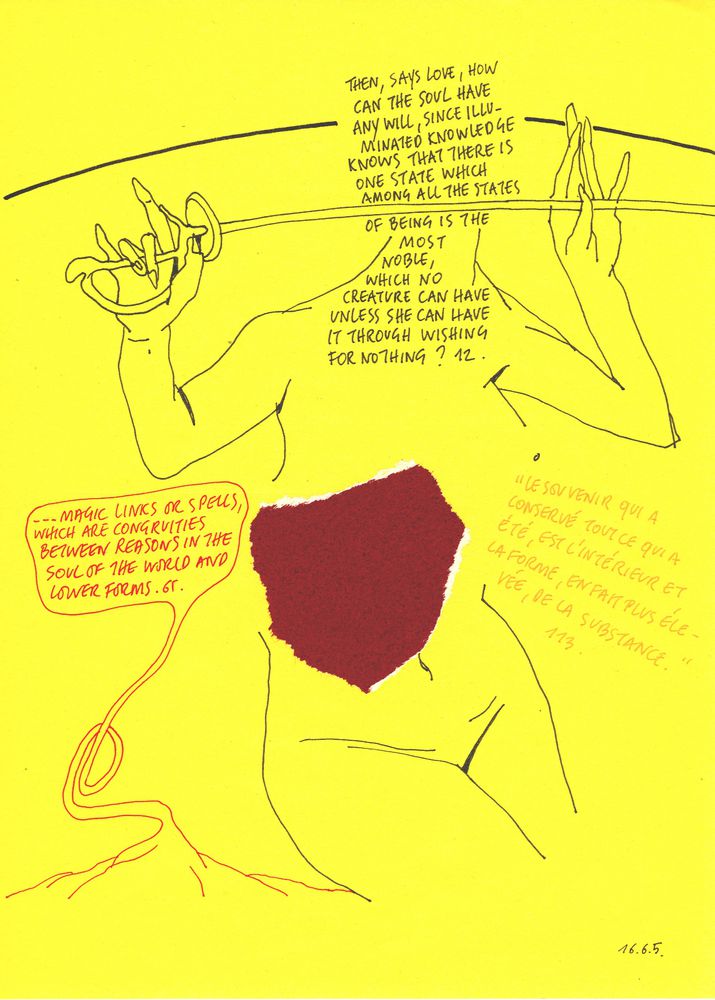 THEN, SAYS LOVE, HOW
CAN THE SOUL HAVE
ANY WILL, SINCE ILLU-
MINATED KNOWLEDGE
KNOWS THAT THERE IS
ONE STATE WHICH
AMONG ALL THE STATES
OF BEING IS THE
MOST
NOBLE,
WHICH NO
CREATURE CAN HAVE
UNLESS SHE CAN HAVE
IT THROUGH WISHING
FOR NOTHING? 12.
---MAGIC LINKS OR SPELLS,
WHICH ARE CONGRUITIES
BETWEEN REASONS IN THE
SOUL OF THE WORLD AND
LOWER FORMS. 61.
"LE SOUVENIR QUI A
CONSERVÉ TOUT CE QUI A
ÉTÉ, EST L'INTÉRIEUR ET
LA FORME, EN FAIT PLUS ÉLE-
VÉE, DE LA SUBSTANCE."
113.
16.6.5.